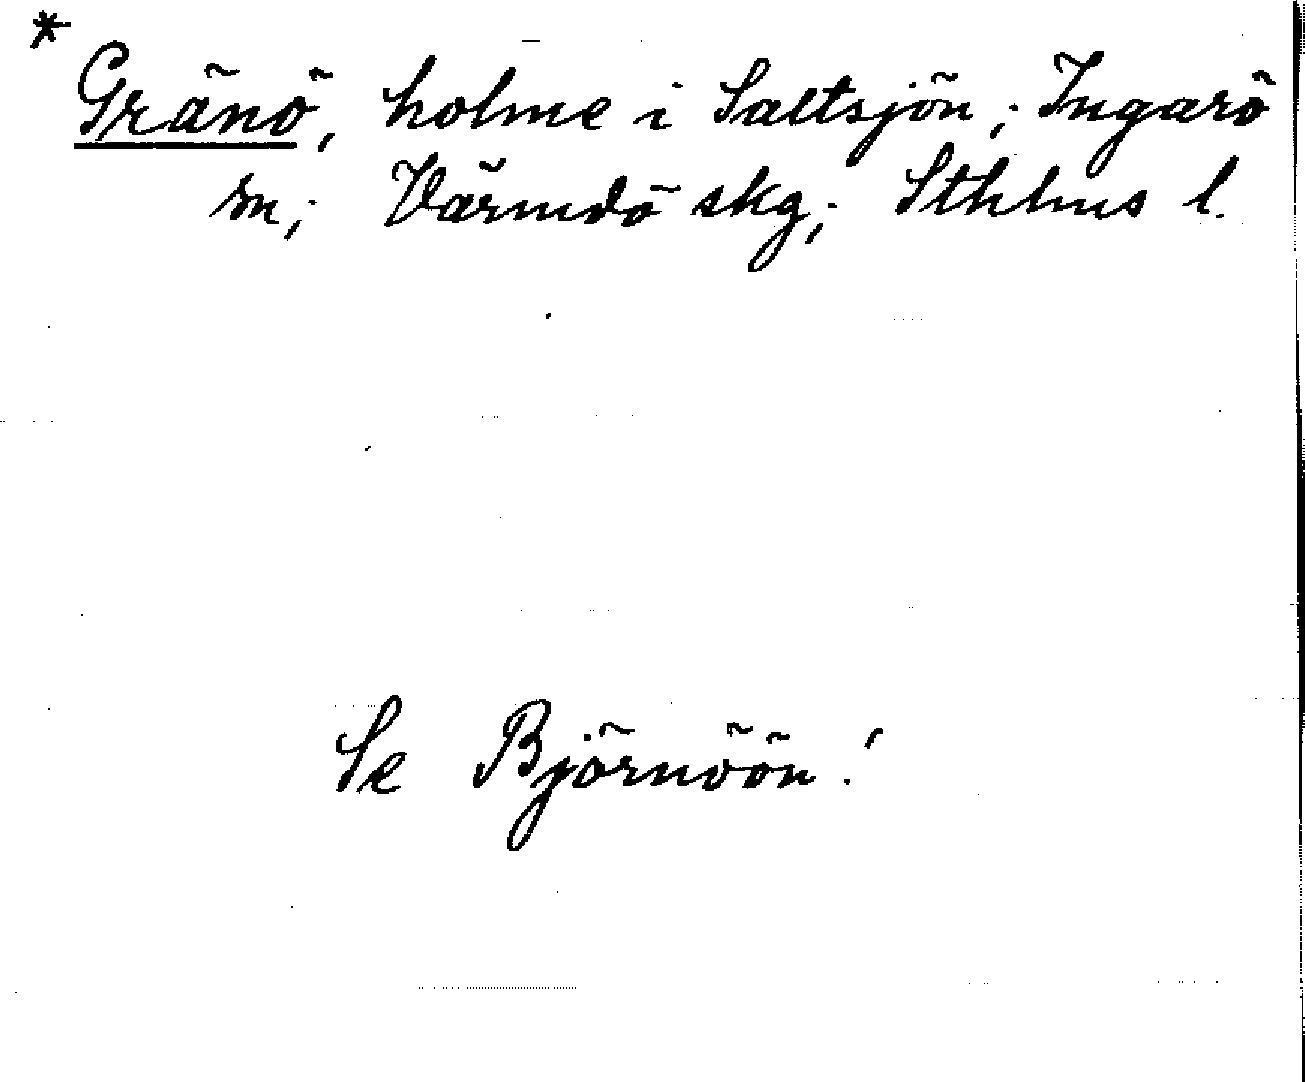 *
Gränö, holme i Saltsjön; Ingarö
sn; Värmdö skg; Sthlms l.
Se Björnöön!